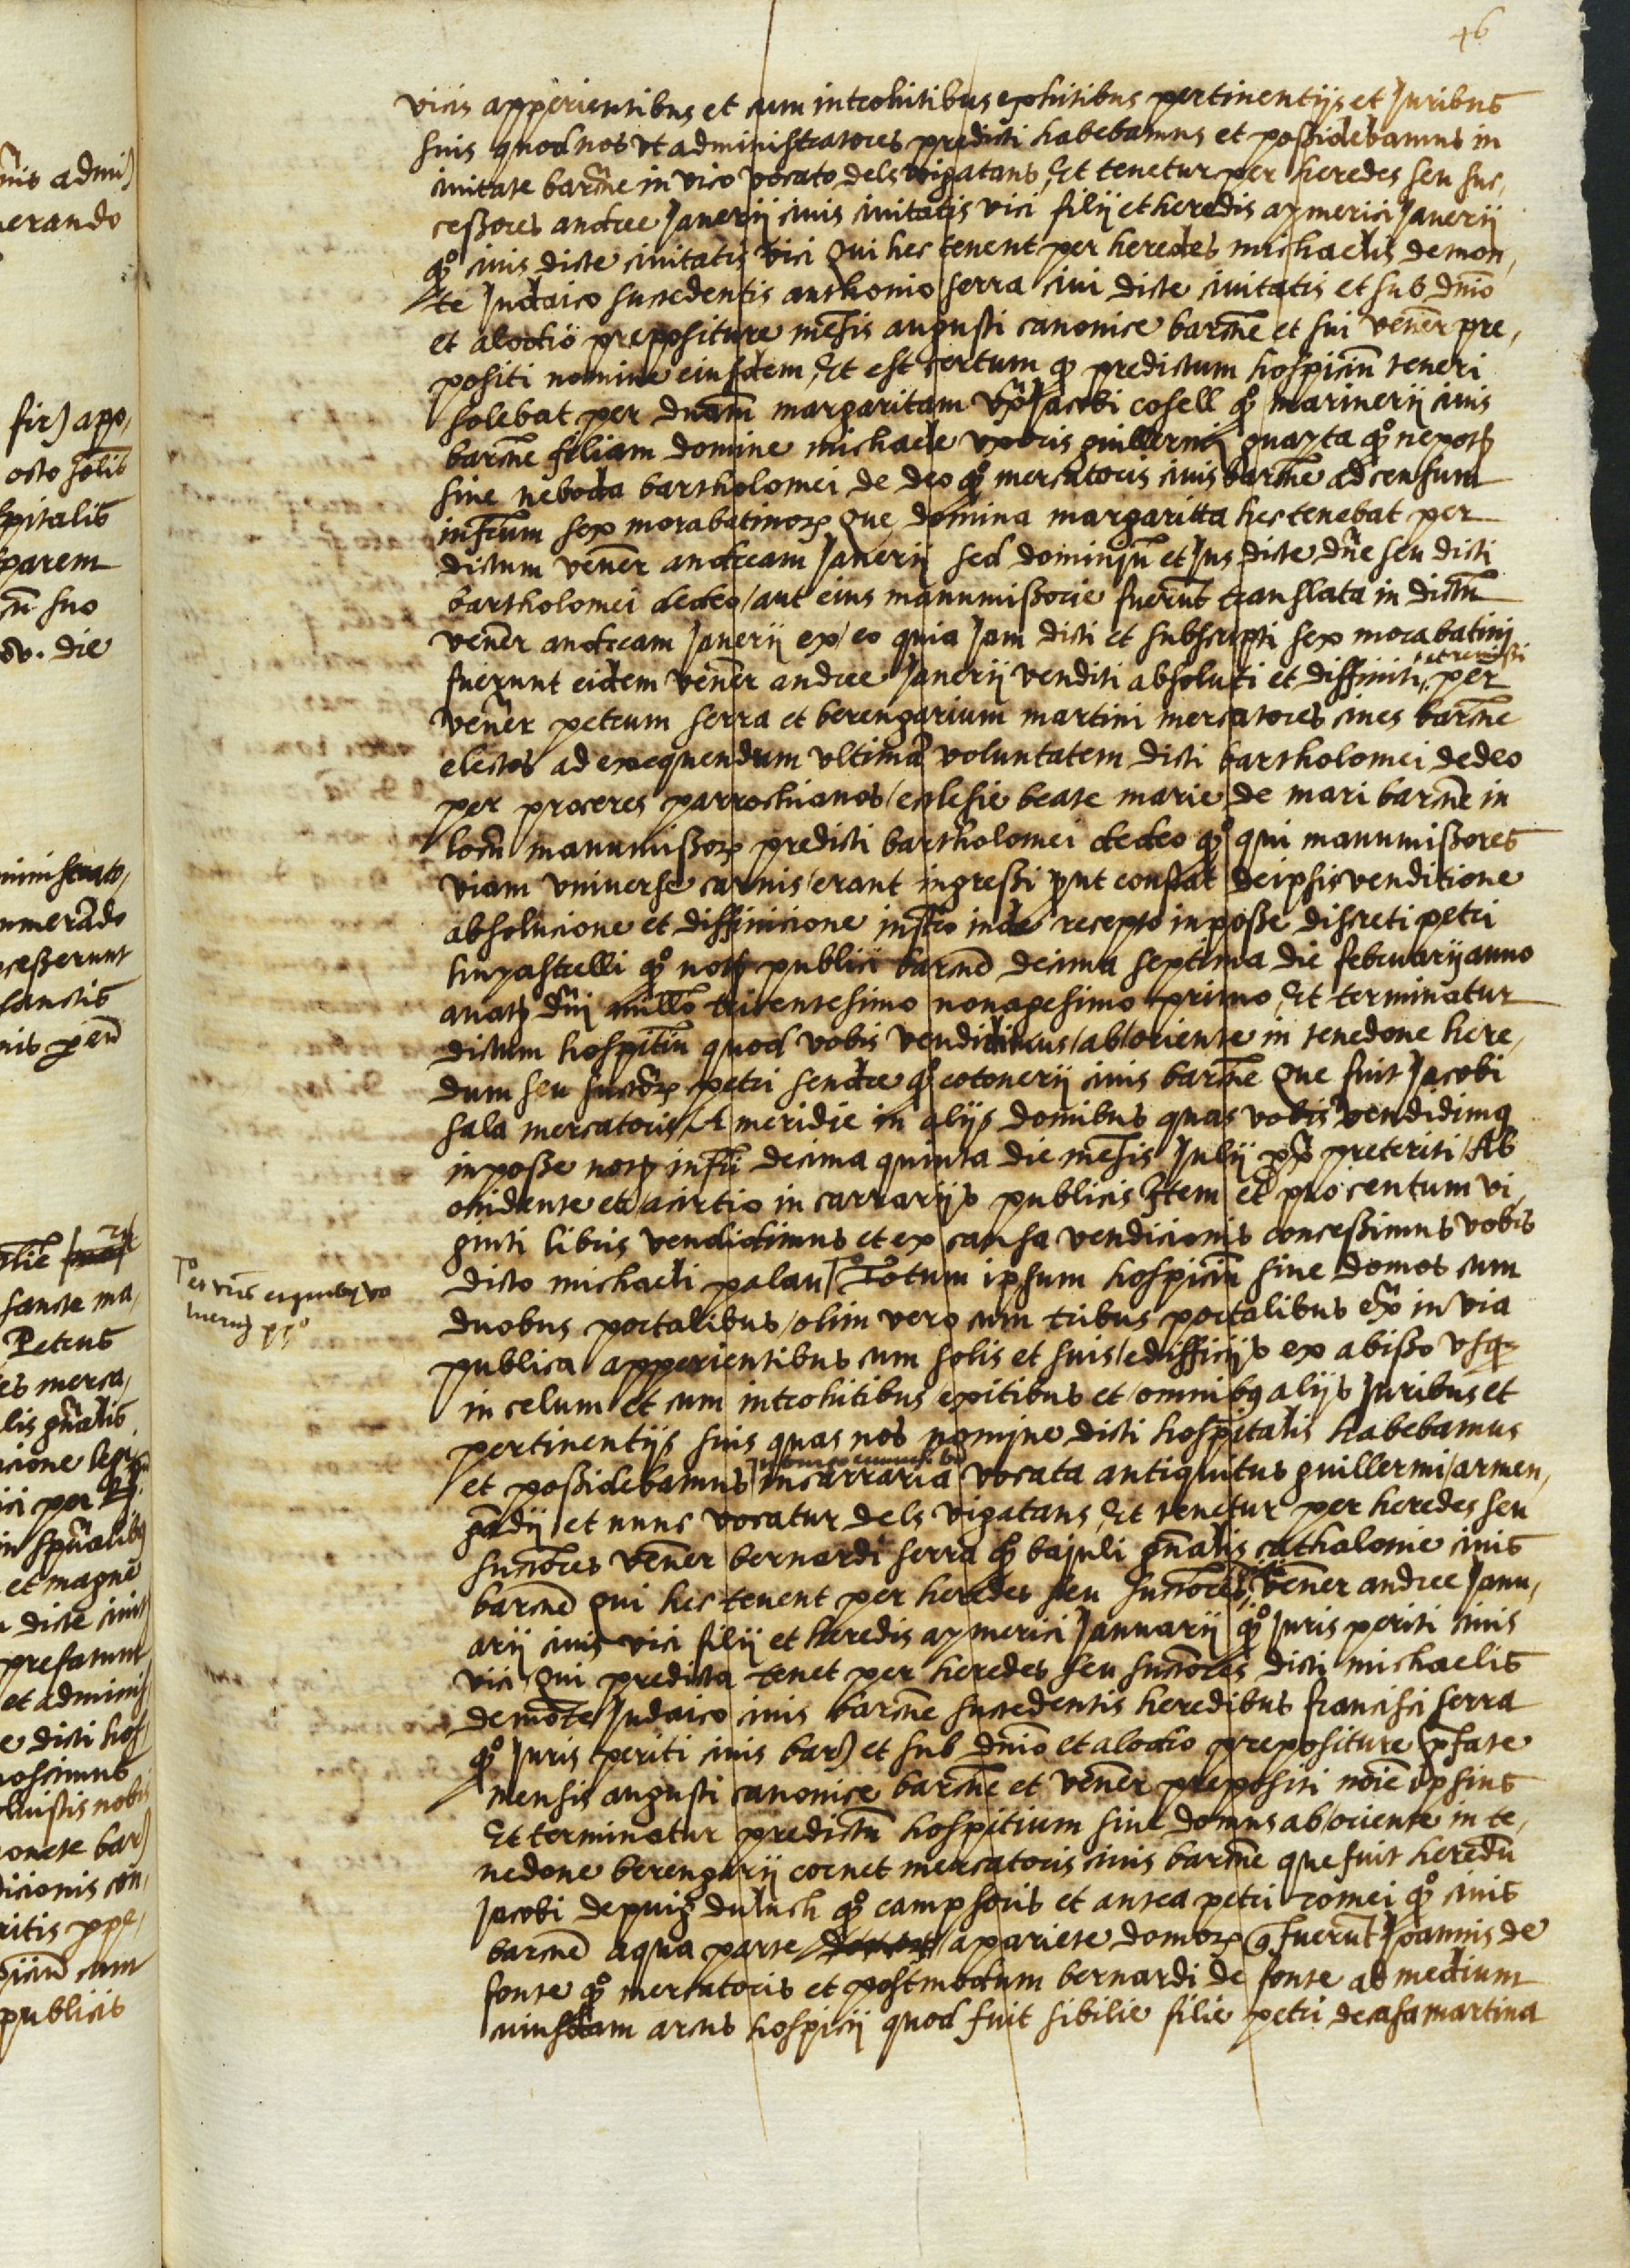 46
vicis apperientibus et cum introhitibus exhitibus pertinentijs et Juribus
suis quod nos vt administratores predicti habebamus et possidebamus in
ciuitate barcne in vico vocato dels vigatans, Et tenetur per heredes seu suc,
cessores andree Janerij ciuis ciuitatis vici filij et heredis aymerici Janerij
qo ciuis dicte ciuitatis vici Qui hec tenent per heredes michaelis de mon,
te Judaico succedentis anthonio serra ciui dicte ciuitatis et sub dnio
et alodio prepositure mensis augusti canonice barcne et sui vener pre,
positi nomine eiusdem, Et est certum q predictum hospiciu teneri
solebat per dnam margaritam vx Jacobi cosell qo marinerij ciuis
barcne filiam domine michaele vxoris guillermi guayta qo nepot
siue neboda bartholomei de deo qo mercatoris ciuis barcne ad censum
infrum sex morabatinor Que domina margaritta hec tenebat per
dictum vener andream Janerij sed dominiu et Jus dicte dne seu dicti
bartholomei dedeo / aut eius manumissorie fuerunt translata in dictu
vener andream Janerij ex eo quia Jam dicti et subscripti sex morabatini
fuerunt eidem vener andree Janerij venditi absoluti et diffiniti et remissi per
vener petrum serra et berengarium martini mercatores ciues barcne
electos ad exequendum vltima voluntatem dicti bartholomei dedeo
per proceres parrochianos ecclesie beate marie de mari barcne in
locu manumissor predicti bartholomei dedeo qo qui manumissores
viam vniuerse carnis erant ingressi put constat de ipsis venditione
absolucione et diffinicione instro inde recepto in posse discreti petri
qo not publici barcne decima septima die februarij anno
anat dnj millo tricentesimo nonagesimo primo, Et terminatur
dictum hospitiu quod vobis vendidimus ab oriente in tenedone here,
dum seu succor petri sendre qo cotonerij ciuis barcne Que fuit Jacobi
sala mercatoris, A meridie in alijs domibus quas vobis vendidimq
in posse not infri decima quinta die mensis Julij px preteriti, Ab
occidente et acirtio in carrarijs publicis Item et pro centum vi,
ginti libris vendidimus et ex causa vendicionis concessimus vobis
dicto michaeli palau / Totum ipsum hospiciu siue domos cum
duobus portalibus / olim vero cum tribus portalibus ex in via
publica apperientibus cum solis et suis edifficijs ex abisso vsq
in celum et cum introhitibus exitibus et omnibq alijs Juribus et
pertinentijs suis quas nos nomine dicti hospitalis habebamus
et possidebamus in carraria vocata antiquitus guillermi armen,
gadij et nunc vocatur dels vigatans, Et tenetur per heredes seu
succores vener bernardi serra qo bajuli gnalis cathalonie ciuis
barcne qui hec tenent per heredes seu succores vener andree Janu,
arij ciuis vici filij et heredis aymerici Januarij qo Juris periti ciuis
vici Qui predicta tenet per heredes seu succores dicti michaelis
de mote Judaico ciuis barcne succedentis heredibus francisci serra
qo Juris periti ciuis bar et sub dnio et alodio prepositure pfate
mensis augusti canonice barcne et vener prepositi noie ipsius
Et terminatur predictu hospitium siue domus ab oriente in te,
nedone berengarij cornet mercatoris ciuis barcne que fuit heredu
Jacobi de puig duluch qo campsoris et antea petri romei qo ciuis
barcne a qua parte apariete domor q fuerut Joannis de
fonte qo mercatoris et postmodum bernardi de fonte ad medium
cuiusdam arcus hospicij quod fuit sibilie filie petri decasamartina